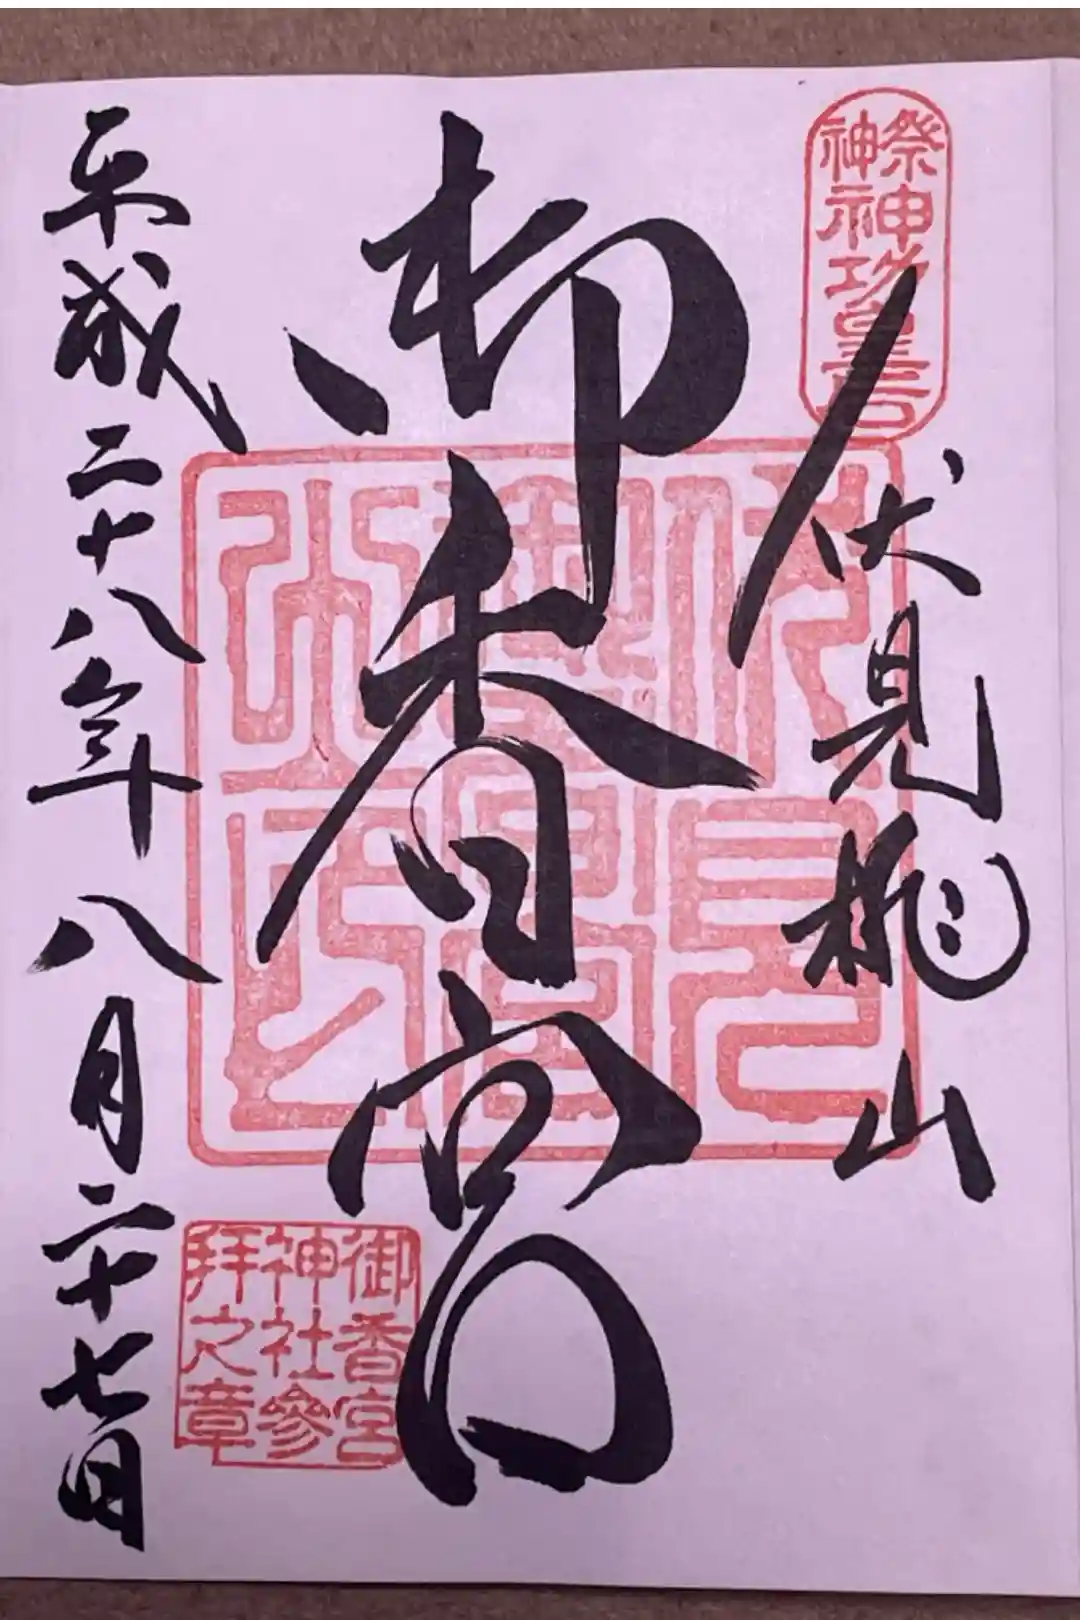 祭神
神功皇后
伏見桃山
御香宮
御香宮
神社参
拝之章
平成二十八年八月二十七日